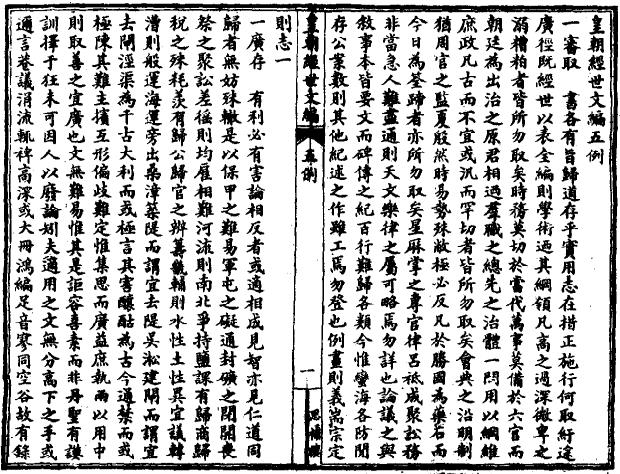 皇朝經世文編五例
一審取　書各有旨歸道存乎實用志在措正施行何取紆途
廣徑既經世以表全編則學術迺其綱領凡高之過深微卑之
溺糟粕者皆所勿取矣時務莫切於當代萬事莫備於六官而
朝廷為出治之原君相迺羣職之總先之治體一門用以綱維
庶政凡古而不宜或汎而罕切者皆所勿取矣會典之沿明制
猶周官之監夏殷然時易勢殊敝極必反凡於勝國為藥石而
今日為筌蹄者亦所勿取矣星厤掌之專官律呂祗成聚訟務
非當急人難盡通則天文樂律之屬可略焉勿詳也論議之與
敘事本皆要文而碑傳之紀百行難歸各類今惟蠻海各防閒
存公案數則其他紀述之作雖工焉勿登也例畫則義耑宗定
皇朝經世文編
五例
一
思補樓
則志一
一廣存　有利必有害論相反者或適相成見智亦見仁道同
歸者無妨殊轍是以保甲之難易軍屯之礙通封礦之開閉喪
祭之聚訟差徭則均雇相難河流則南北爭持鹽課有歸商歸
稅之殊耗羨有歸公歸官之辨籌畿輔則水性土性異宜議轉
漕則般運海運旁出桑漳築隄而謂宜去隄吳淞建閘而謂宜
去閘涇渠為千古大利而或極言其害釀酤為古今通禁而或
極陳其難主擯互形偏歧難定惟集思而廣益庶執兩以用中
則取善之宜廣也文無難易惟其是詎容喜素而非丹聖有謨
訓擇于狂未可因人以廢論矧夫適用之文無分高下之手或
通言巷議涓流輒裨高深或大冊鴻編足音寥同空谷故有錄